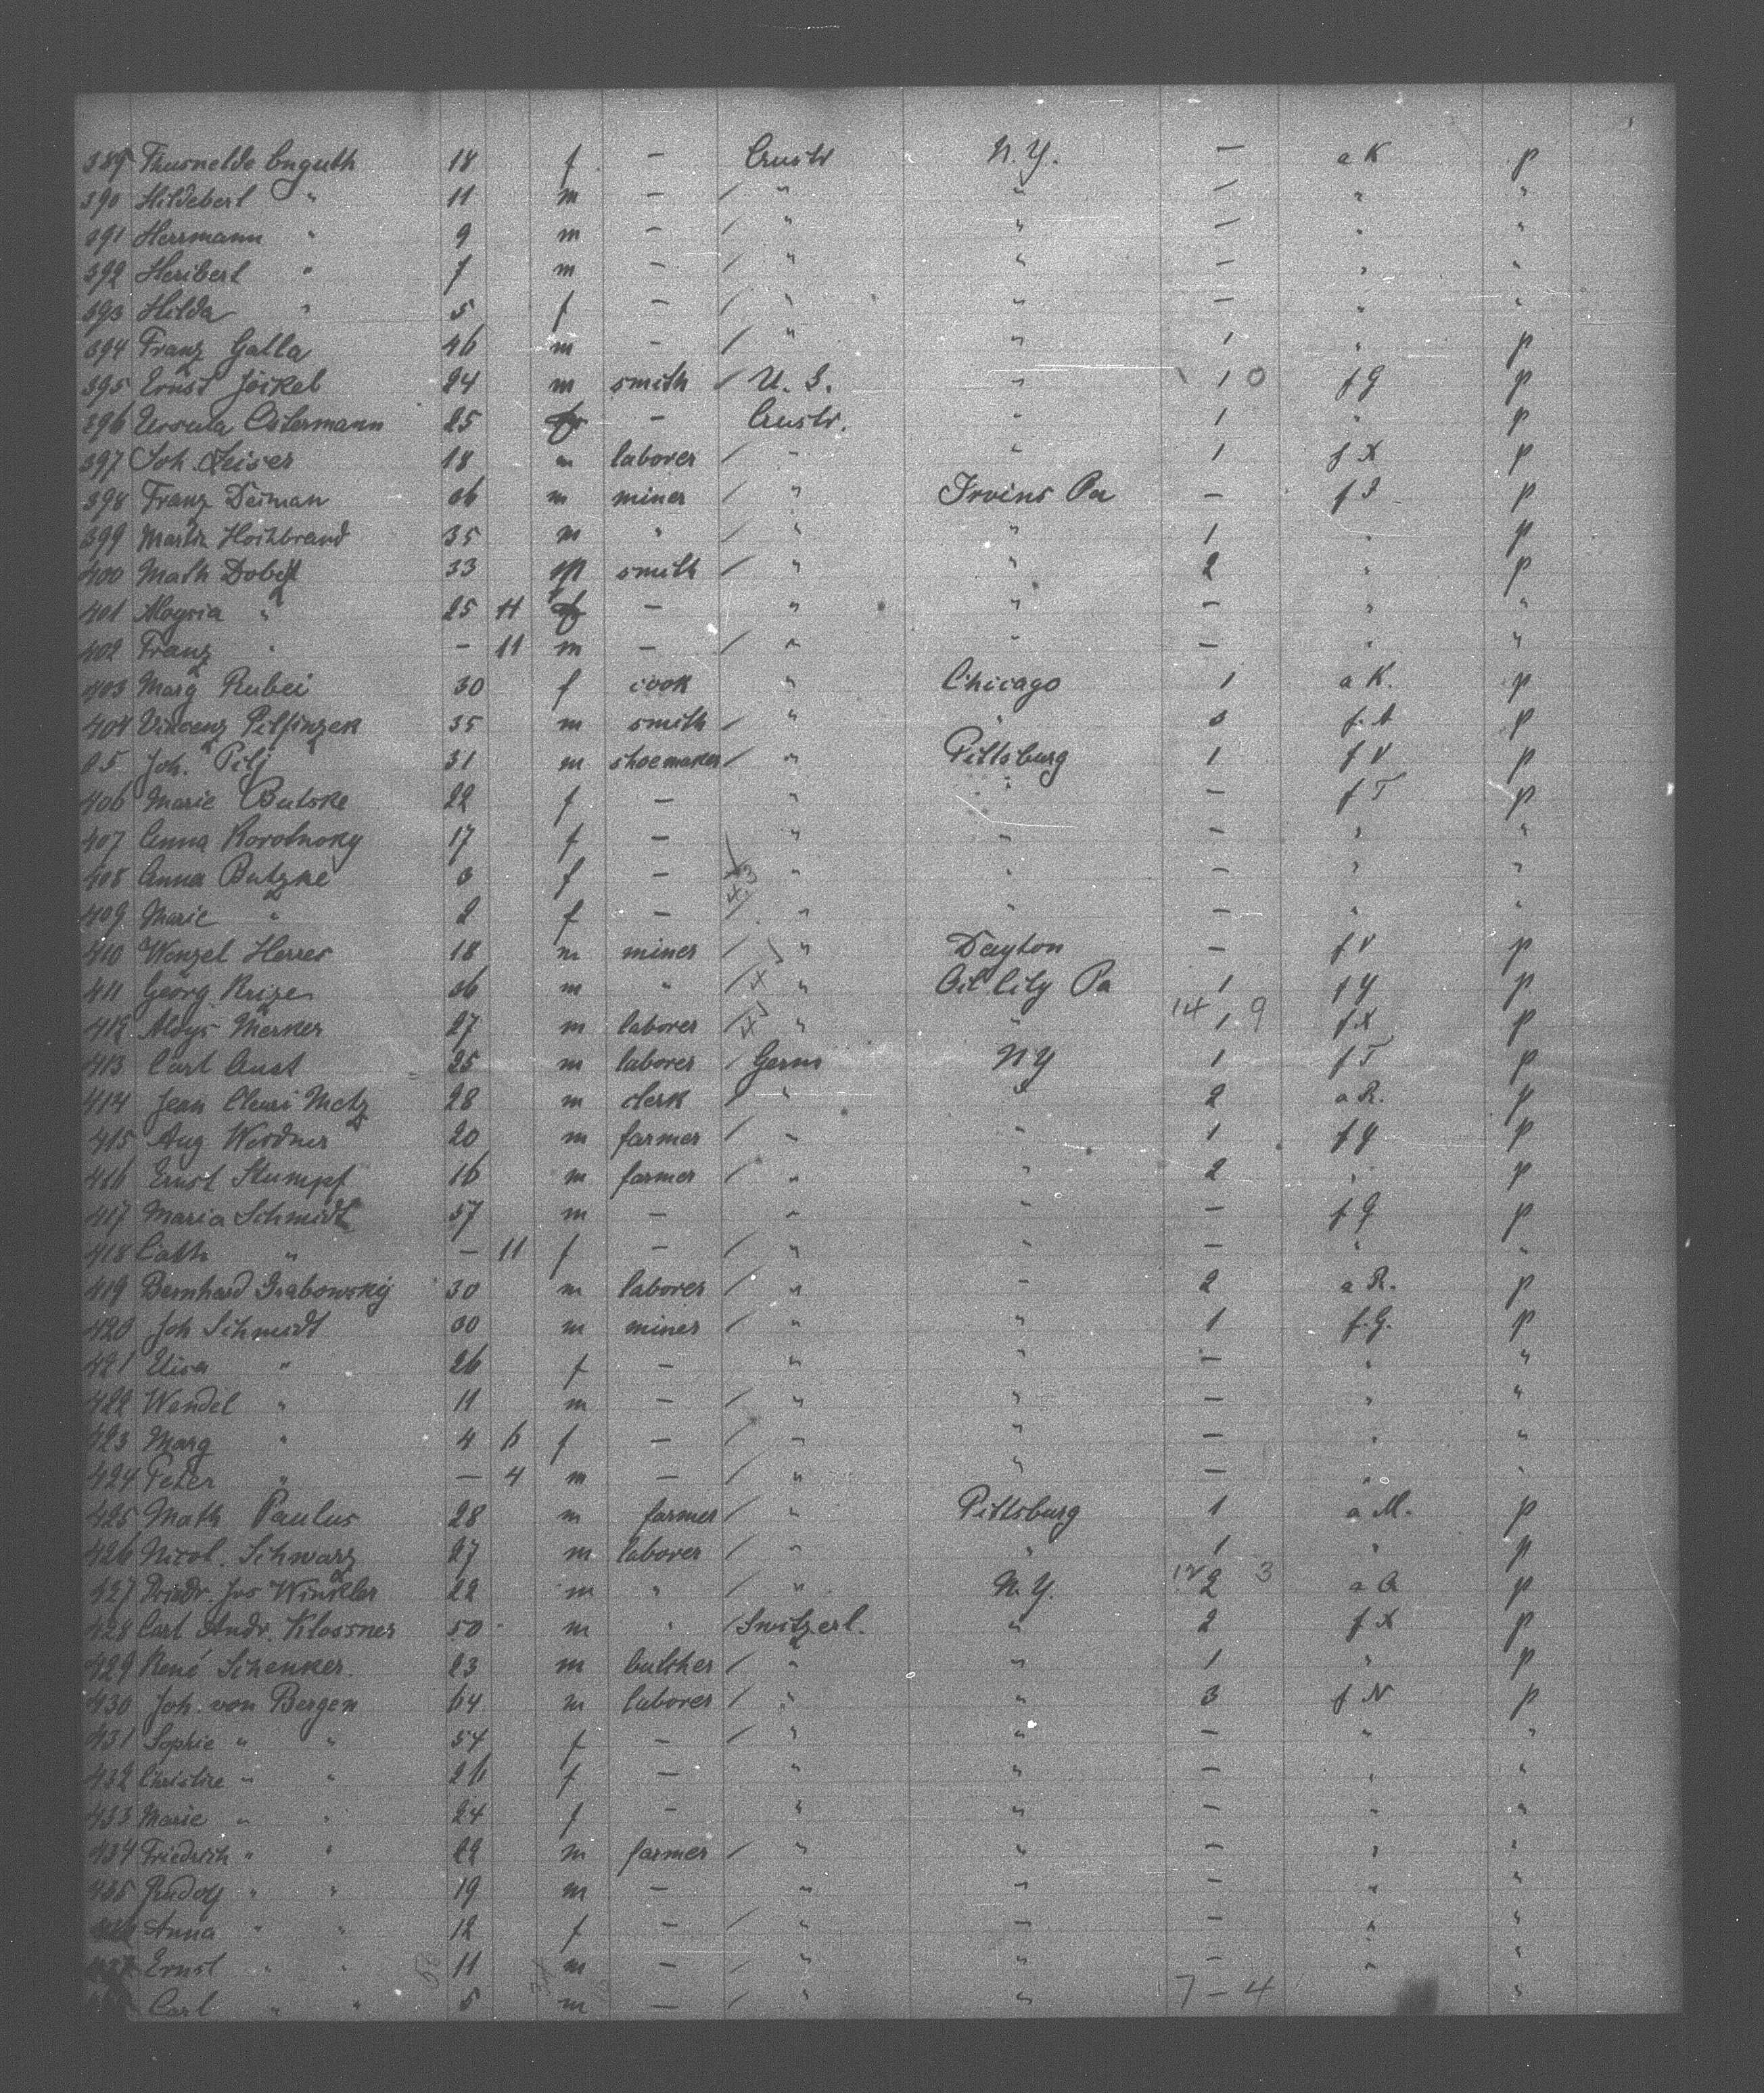 389 Thusnelde Enguth 18 f — Austr N.Y. — a K p
390 Hildebert " 11 m — / " " — " "
391 Herrmann " 9 m — / " " — " "
392 Heribert " 7 m — / " " — " "
393 Hilda " 5 f — / " " — " "
394 Franz Galla 46 m — / " " 1 " p
395 Ernst Jöikel 24 m smith / U. S. " 1 0 f G p
396 Ursula Ostermann 25 f — Austr. " 1 " p
397 Joh. Leiser 18 m laborer / " " 1 f X p
398 Franz Deiman 36 m miner / " Irvins Pa — f I p
399 Martin 35 m " / " " 1 " p
400 Math 33 m smith / " " 2 " p
401 Aloysia " 25 11 f — " " — " "
402 Franz " — 11 m — / " " — " "
403 Marg Rubei 30 f cook " Chicago 1 a K. p
404 Vincenz Pilfinzek 35 m smith / " " 3 f. A p
05 Joh. Pilj 31 m shoemaker / " Pittsburg 1 f V p
406 Marie Butske 22 f — " " — f T p
407 Anna 17 f — " " — " "
408 Anna Butzke 3 f — " " — " "
409 Marie " 2 f — / " " — " "
410 Wenzel Herres 18 m miner / " Dayton — f V p
411 Georg Krizen 36 m " / " Oil City Pa 1 f Y p
412 Aloys Merker 27 m laborer / " " 14 1 9 f X p
413 Carl Aust 25 m laborer / Germ N Y 1 f T p
414 Jean Metz 28 m clerk / " " 2 a R. p
415 Aug Werdner 20 m farmer / " " 1 f Y p
416 Ernst Stumpf 16 m farmer / " " 2 " p
417 Maria Schmidt 57 m — " " — f G p
418 Cath " — 11 f — / " " — " "
419 Bernhard Grabowsky 30 m laborer / " " 2 a R. p
420 Joh Schmidt 30 m miner / " " 1 f. G. p
421 Elisa " 26 f — " " — " "
422 Wendel " 11 m — / " " — " "
423 Marg " 4 6 f — / " " — " "
424 Peter " — 4 m — / " " — " "
425 Math Paulus 28 m farmer / " Pittsburg 1 a M. p
426 Nicol. Schwarz 27 m laborer / " " 1 " p
427 Friedr. Jos Winkler 22 m " / " N. Y. 12 2 3 a A p
428 Carl Andr. Klossner 50 m " / Switzerl. " 2 f X p
429 René Schenker. 23 m butcher / " " 1 " p
430 Joh. von Bergen 64 m laborer / " " 3 f N p
431 Sophie " " 54 f — / " " — " "
432 Christine " " 26 f — " " — " "
433 Marie " " 24 f — " " — " "
434 Friedrich " " 22 m farmer / " " — " "
435 Rudolf " " 19 m — " " — " "
Anna " " 12 f — / " " — " "
437 Ernst " " 11 m — / " " — " "
Carl " " 5 m — / " " 7 – 4 "